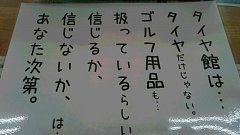 タイヤ館は…
タイヤだけじゃない。
ゴルフ用品も…
扱っているらしい
信じるか、
信じないか、は…
あなた次第。